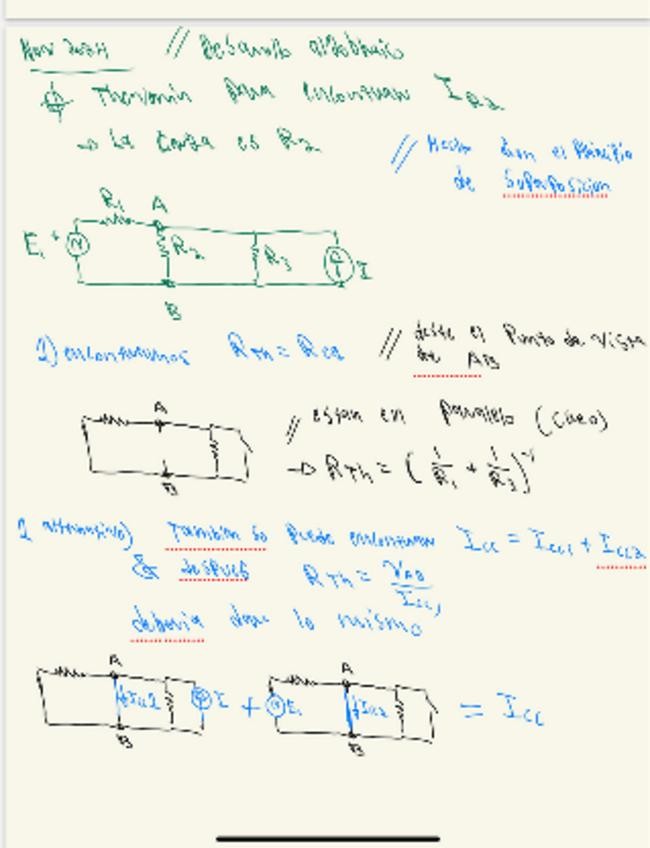 // Desarrollo algebraico
Thevenin para encontrar I_R2
→ La carga es R2
// Hecho con el Principio
de Superposicion
R1 A
E1 + R2 R3 I
B
1) encontramos R_Th = R_eq // desde el Punto de vista
de AB
A
// estan en paralelo (creo)
→ R_Th = (1/R1 + 1/R3)^-1
B
1 alternativo) Tambien se puede encontrar I_cc = I_cc1 + I_cc2
& despues R_Th = V_AB / I_cc,
deberia dar lo mismo
A A
I_cc1 I + E1 I_cc2 = I_cc
B B